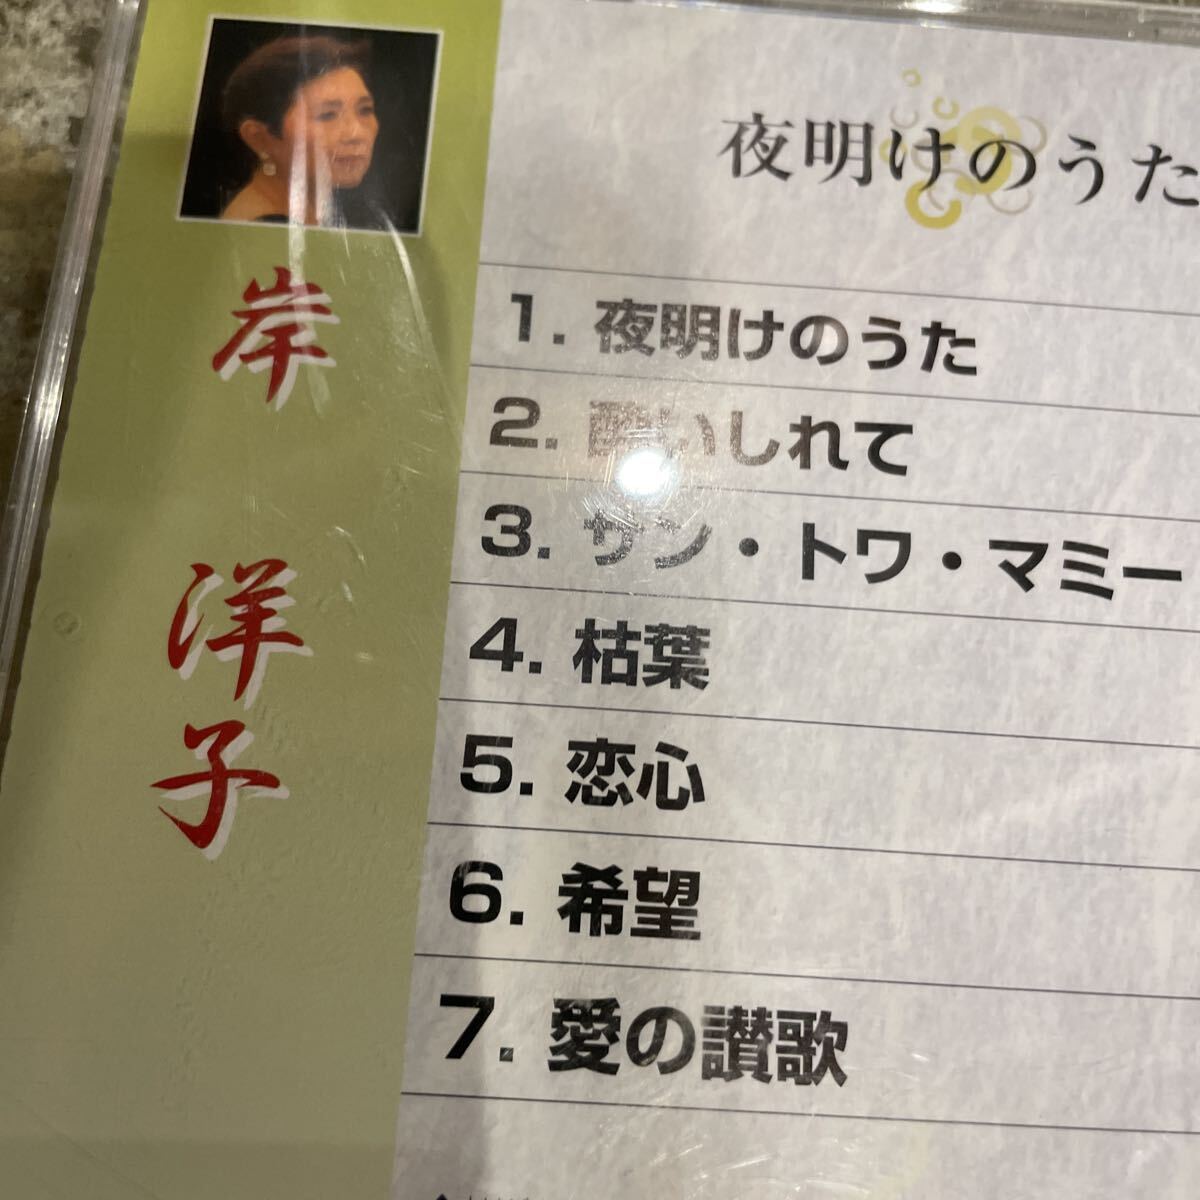 岸洋子
夜明けのうた
1. 夜明けのうた
2. 酔いしれて
3. サン・トワ・マミー
4. 枯葉
5. 恋心
6. 希望
7. 愛の讃歌